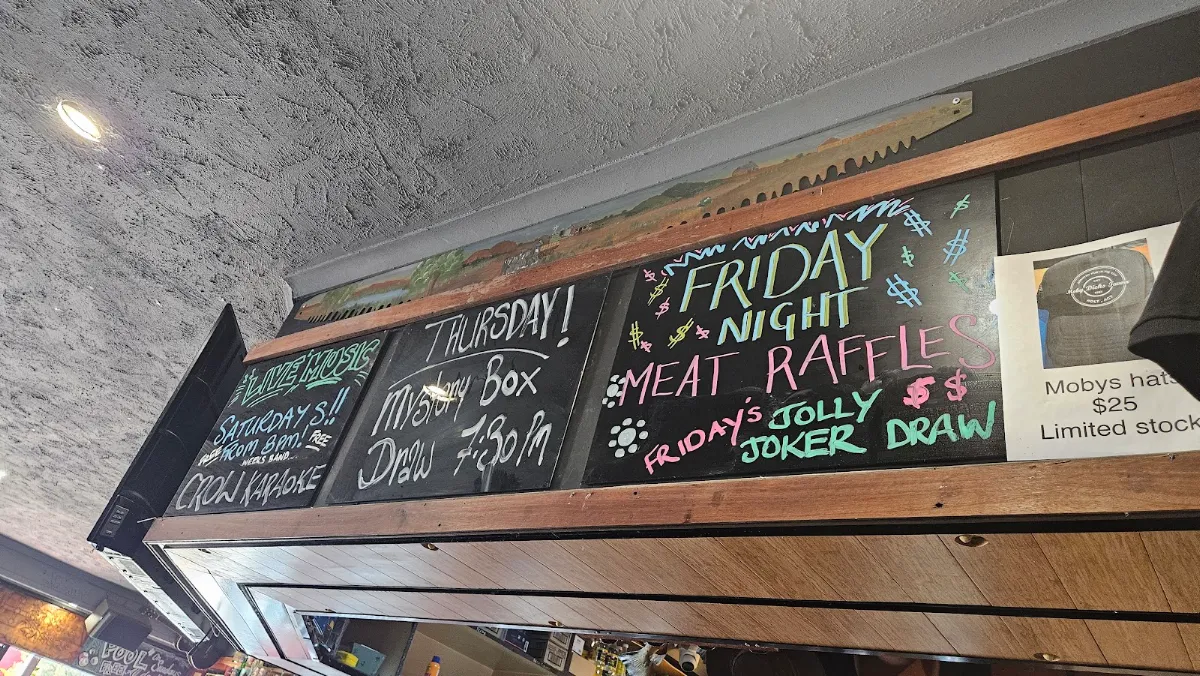 LIVE MUSIC
SATURDAYS!!
FROM 8PM! FREE
FREE WEEKS BAND...
CROW KARAOKE
THURSDAY!
Mystery Box
Draw 7:30 Pm
FRIDAY
NIGHT
MEAT RAFFLES
FRIDAY'S JOLLY
JOKER DRAW
Mobys hats
$25
Limited stock
POOL